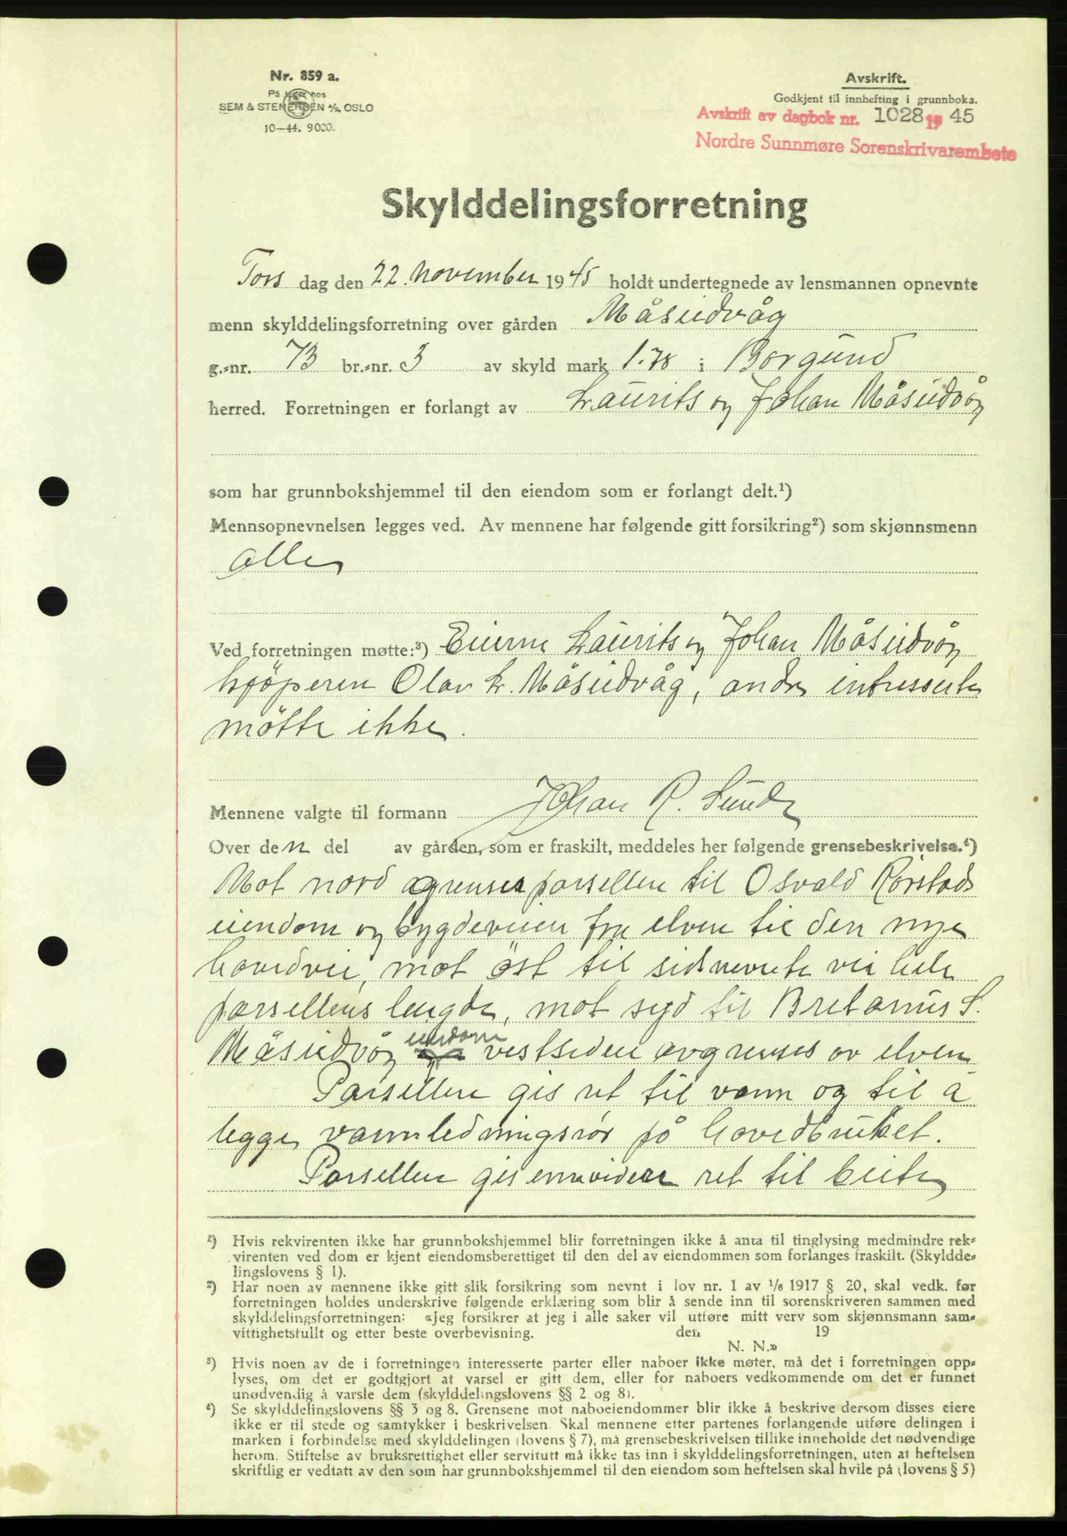 Nr. 859 a.
På lager hos
SEM & STENERSEN A/S, OSLO
10—44. 9000.
Avskrift.
Godkjent til innhefting i grunnboka.
Avskrift av dagbok nr. 1028 19 45
Nordre Sunnmøre Sorenskrivarembete
Skylddelingsforretning
Tors dag den 22. November 1945 holdt undertegnede av lensmannen opnevnte
menn skylddelingsforretning over gården Måseidvåg
g.-nr. 73 br.-nr. 3 av skyld mark 1.78 i Borgund
herred. Forretningen er forlangt av Laurits og Johan Måseidvåg
som har grunnbokshjemmel til den eiendom som er forlangt delt.¹)
Mennsopnevnelsen legges ved. Av mennene har følgende gitt forsikring²) som skjønnsmenn
alle
Ved forretningen møtte:³) Eierne Laurits og Johan Måseidvåg
kjøperen Olav L. Måseidvåg, andre interesserte
møtte ikke.
Mennene valgte til formann Johan R. Sunde
Over den del av gården, som er fraskilt, meddeles her følgende grensebeskrivelse.⁴)
Mot nord grenser parsellen til Osvald Rørstads
eiendom og bygdeveien fra elven til den nye
hovedvei, mot øst til sidsnevnte vei hele
parsellens lengde, mot syd til Bretanus S.
Måseidvåg eiendom vestsiden avgrenses av elven.
Parsellen gis ret til vann og til å
legge vannledningsrør på hovedbruket.
Parsellen gis ennvidere ret til beite
¹) Hvis rekvirenten ikke har grunnbokshjemmel blir forretningen ikke å anta til tinglysing medmindre rek-
virenten ved dom er kjent eiendomsberettiget til den del av eiendommen som forlanges fraskilt. (Skyldde-
lingslovens § 1).
²) Har noen av mennene ikke gitt slik forsikring som nevnt i lov nr. 1 av 1/6 1917 § 20, skal vedk. før
forretningen holdes underskrive følgende erklæring som blir å sende inn til sorenskriveren sammen med
skylddelingsforretningen: «Jeg forsikrer at jeg i alle saker vil utføre mitt verv som skjønnsmann sam-
vittighetsfullt og etter beste overbevisning. den 19
N. N.»
³) Hvis noen av de i forretningen interesserte parter eller naboer ikke møter, må det i forretningen opp-
lyses, om det er godtgjort at varsel er gitt dem, eller for naboers vedkommende om det er funnet
unødvendig å varsle dem (skylddelingslovens §§ 2 og 8).
⁴) Se skylddelingslovens §§ 3 og 8. Grensene mot naboeiendommer blir ikke å beskrive dersom disses eiere
ikke er til stede og samtykker i beskrivelsen. Skal mennene etter partenes forlangende utføre delingen i
marken i forbindelse med skylddelingen (lovens § 7), må grensebeskrivelsen tillike inneholde det nødvendige
herom. Stiftelse av bruksrettighet eller servitutt må ikke tas inn i skylddelingsforretningen, uten at heftelsen
skriftlig er vedtatt av den som har grunnbokshjemmel til den eiendom som heftelsen skal hvile på (lovens § 5)